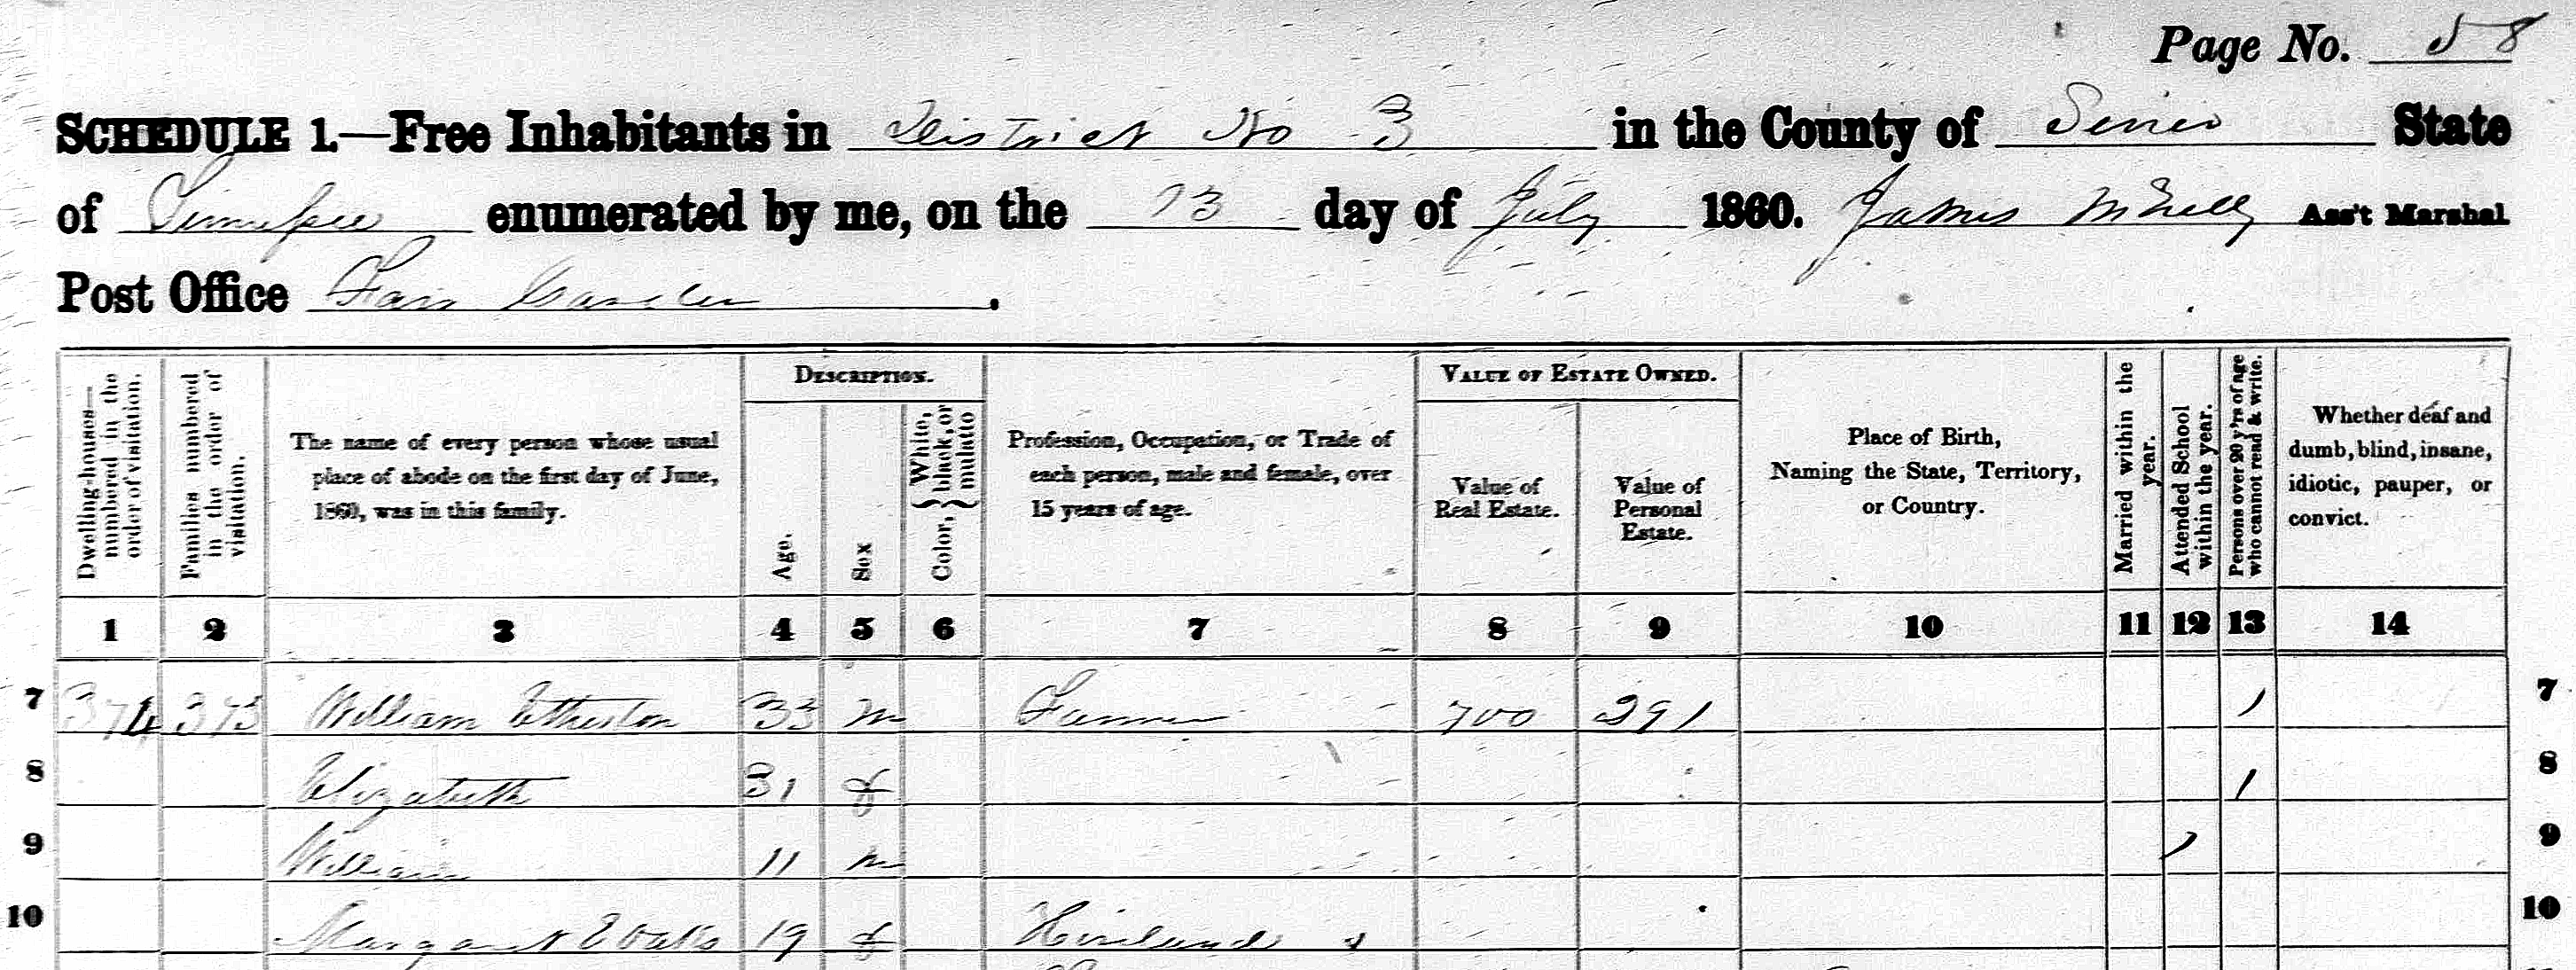 Page No. 58
SCHEDULE 1.—Free Inhabitants in District No 3 in the County of Sevier State
of Tennessee enumerated by me, on the 13 day of July 1860. James McNelly Ass't Marshal
Post Office Fair Garden.
Dwelling-houses—numbered in the order of visitation.
Families numbered in the order of visitation.
The name of every person whose usual
place of abode on the first day of June,
1860, was in this family.
DESCRIPTION.
Age.
Sex
Color, { White, black, or mulatto
Profession, Occupation, or Trade of
each person, male and female, over
15 years of age.
VALUE OF ESTATE OWNED.
Value of
Real Estate.
Value of
Personal
Estate.
Place of Birth,
Naming the State, Territory,
or Country.
Married within the year.
Attended School within the year.
Persons over 20 y'rs of age who cannot read & write.
Whether deaf and
dumb, blind, insane,
idiotic, pauper, or
convict.
1 2 3 4 5 6 7 8 9 10 11 12 13 14
7 374 373 William Etherton 33 m Farmer 700 291 1 7
8 Elizabeth 31 f 1 8
9 William 11 m 1 9
10 Margaret 19 f 10